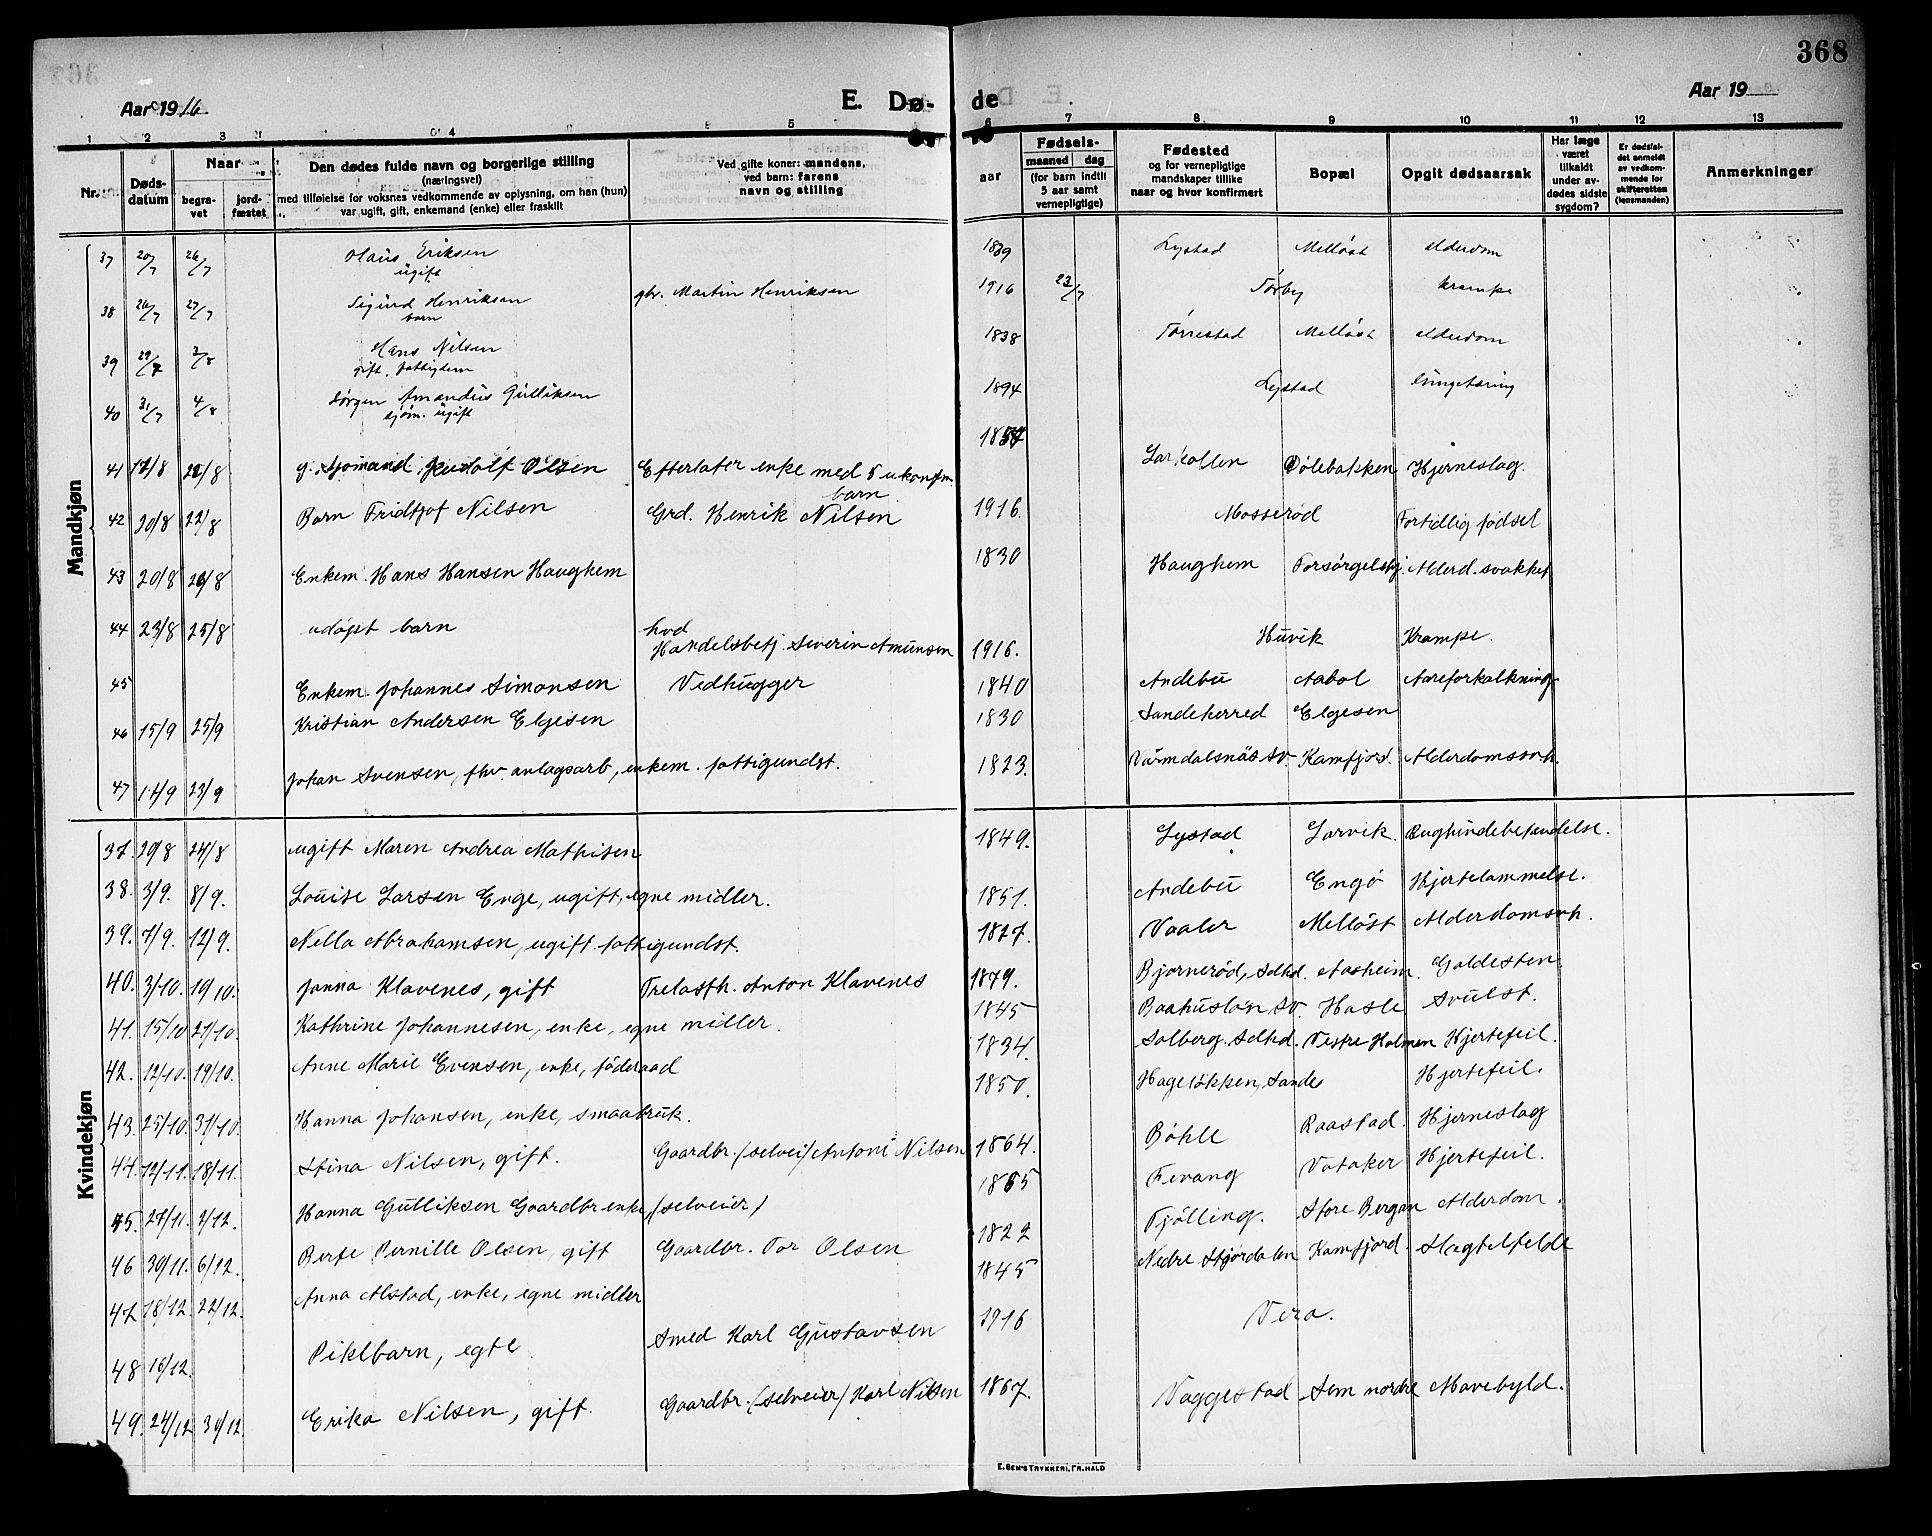 368
Aar 1916
E. Dø-
de
Aar 19
1 2 3 4 5 6 7 8 9 10 11 12 13
Nr.
Døds-
datum
Naar
begra-
vet
jord-
fæstet
Den dødes fulde navn og borgerlige stilling
(næringsvei)
med tilføielse for voksnes vedkommende av oplysning, om han (hun)
var ugift, gift, enkemand (enke) eller fraskilt
Ved gifte koner: mandens,
ved barn: farens
navn og stilling
aar
Fødsels-
maaned dag
(for barn indtil
5 aar samt
vernepligtige)
Fødested
og for vernepligtige
mandskaper tillike
naar og hvor konfirmert
Bopæl
Opgit dødsaarsak
Har læge
været
tilkaldt
under av-
dødes sidste
sygdom?
Er dødsfal-
det anmeldt
av vedkom-
mende for
skifteretten
(lensmanden)
Anmerkninger
Mandkjøn
37 20/7 26/7 Hans Eriksen 1839 Lystad Melløst alderdom
ugift
38 26/7 27/7 Sigurd Henriksen gbr. Martin Henriksen 1916 23/7 Tørby krampe
barn
39 29/7 2/8 Hans Nilsen 1838 Tørrestad Melløst alderdom
gift, fattiglem
40 31/7 4/8 Jørgen Amandus Gulliksen 1894 Lystad lungetæring
sjøm. ugift
41 17/8 21/8 g. Sjømand Rudolf Olsen Efterlater enke med 5 ukonfm. 1857 Larkollen Dølebakken Hjerneslag.
barn
42 20/8 22/8 Barn Fridtjof Nilsen Grd. Henrik Nilsen 1916. Mosserød Fortidlig fødsel
43 20/8 26/8 Enkem. Hans Hansen Haughem 1830 Haughem Forsørgelshj. Alderd.svakhet
44 23/8 25/8 udøpt barn hvd
Handelsbetj. Severin Amunsen 1916. Huvik Krampe.
45 Enkem. Johannes Simonsen Vedhugger 1840 Andebu Aabol Aareforkalkning
46 15/9 25/9 Kristian Andersen Elgesen 1830 Sandeherred Elgesen
47 17/9 23/9 Johan Svensen, fhv. anlagsarb, enkem. fattigundst. 1823. Värmdalsnäs Sv. Kamfjord. Alderdomssvh.
Kvindekjøn
37. 20/8 24/8 ugift Maren Andrea Mathisen 1849. Lystad Larvik.
38. 3/9. 8/9. Louise Larsen Enge, ugift, egne midler. 1851. Andebu Engø Hjertelammelse.
39. 7/9. 12/9. Nella Abrahamsen, ugift fattigundst. 1827. Vaaler Melløst Alderdomsvh.
40. 3/10. 19/10. Janna Klavenes, gift Trelasth. Anton Klavenes 1879. Bjørnerød, Sdhd. Aasheim. Galdesten.
41. 15/10 21/10. Kathrine Johannesen, enke, egne midler. 1845 Baahuslän Sv. Hasle Svulst.
42. 12/10. 19/10. Anne Marie Evensen, enke, føderaad 1834. Solberg. Sdhd. Vestre Holmen Hjertefeil.
43. 25/10. 31/10. Hanna Johansen, enke, smaabruk. 1850. Hageløkken, Sandes Hjertefeil.
44. 12/11. 18/11. Stina Nilsen, gift. Gaardbr. (selvei) Antoni Nilsen 1864. Bøhle Raastad. Hjerneslag
45. 27/11. 2/12. Hanna Gulliksen Gaardbrenke (selveier) 1865 Fevang Vataker Hjertefeil.
46 30/11. 6/12. Berte Pernille Olsen, gift Gaardbr. Tor Olsen 1822 Tjølling. Store Bergan Alderdom.
47 18/12. 22/12. Anna Alstad, enke, egne midler 1845 Nedre Stjørdalen Kamfjord. Slagtelfelde
48 16/12. Pikebarn, egte Smed Karl Gustavsen 1916 Vera.
49. 24/12 30/12 Erika Nilsen, gift. Gaardbr. (selveier) Karl Nilsen 1867. Vaggestad Sem nordre Mavebyld.
E. SEM'S TRYKKERI, FR.HALD